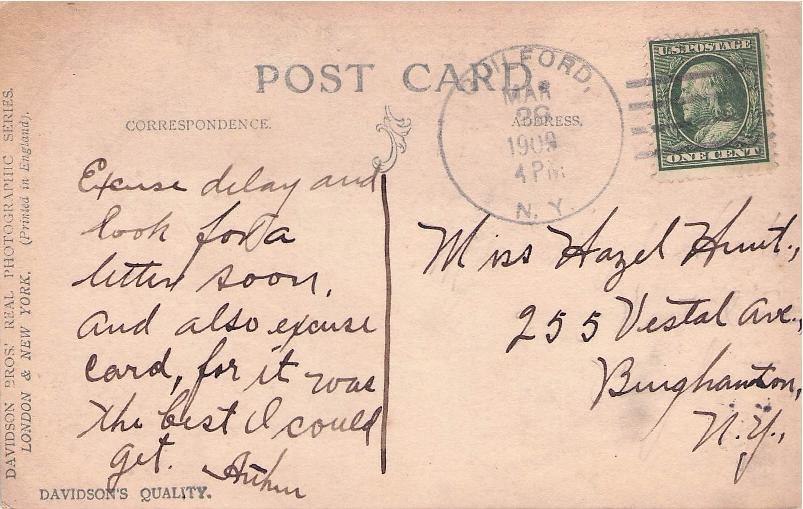 POST CARD.
CORRESPONDENCE.
ADDRESS.
GUILFORD,
MAR
26
1909
4 PM
N. Y.
U.S. POSTAGE
ONE CENT
Excuse delay and
look for a
letter soon,
and also excuse
card, for it was
the best I could
get. Arthur
Miss Hazel Hunt.,
255 Vestal Ave.,
Binghamton,
N.Y.,
DAVIDSON BROS.' REAL PHOTOGRAPHIC SERIES.
LONDON & NEW YORK. (Printed in England).
DAVIDSON'S QUALITY.